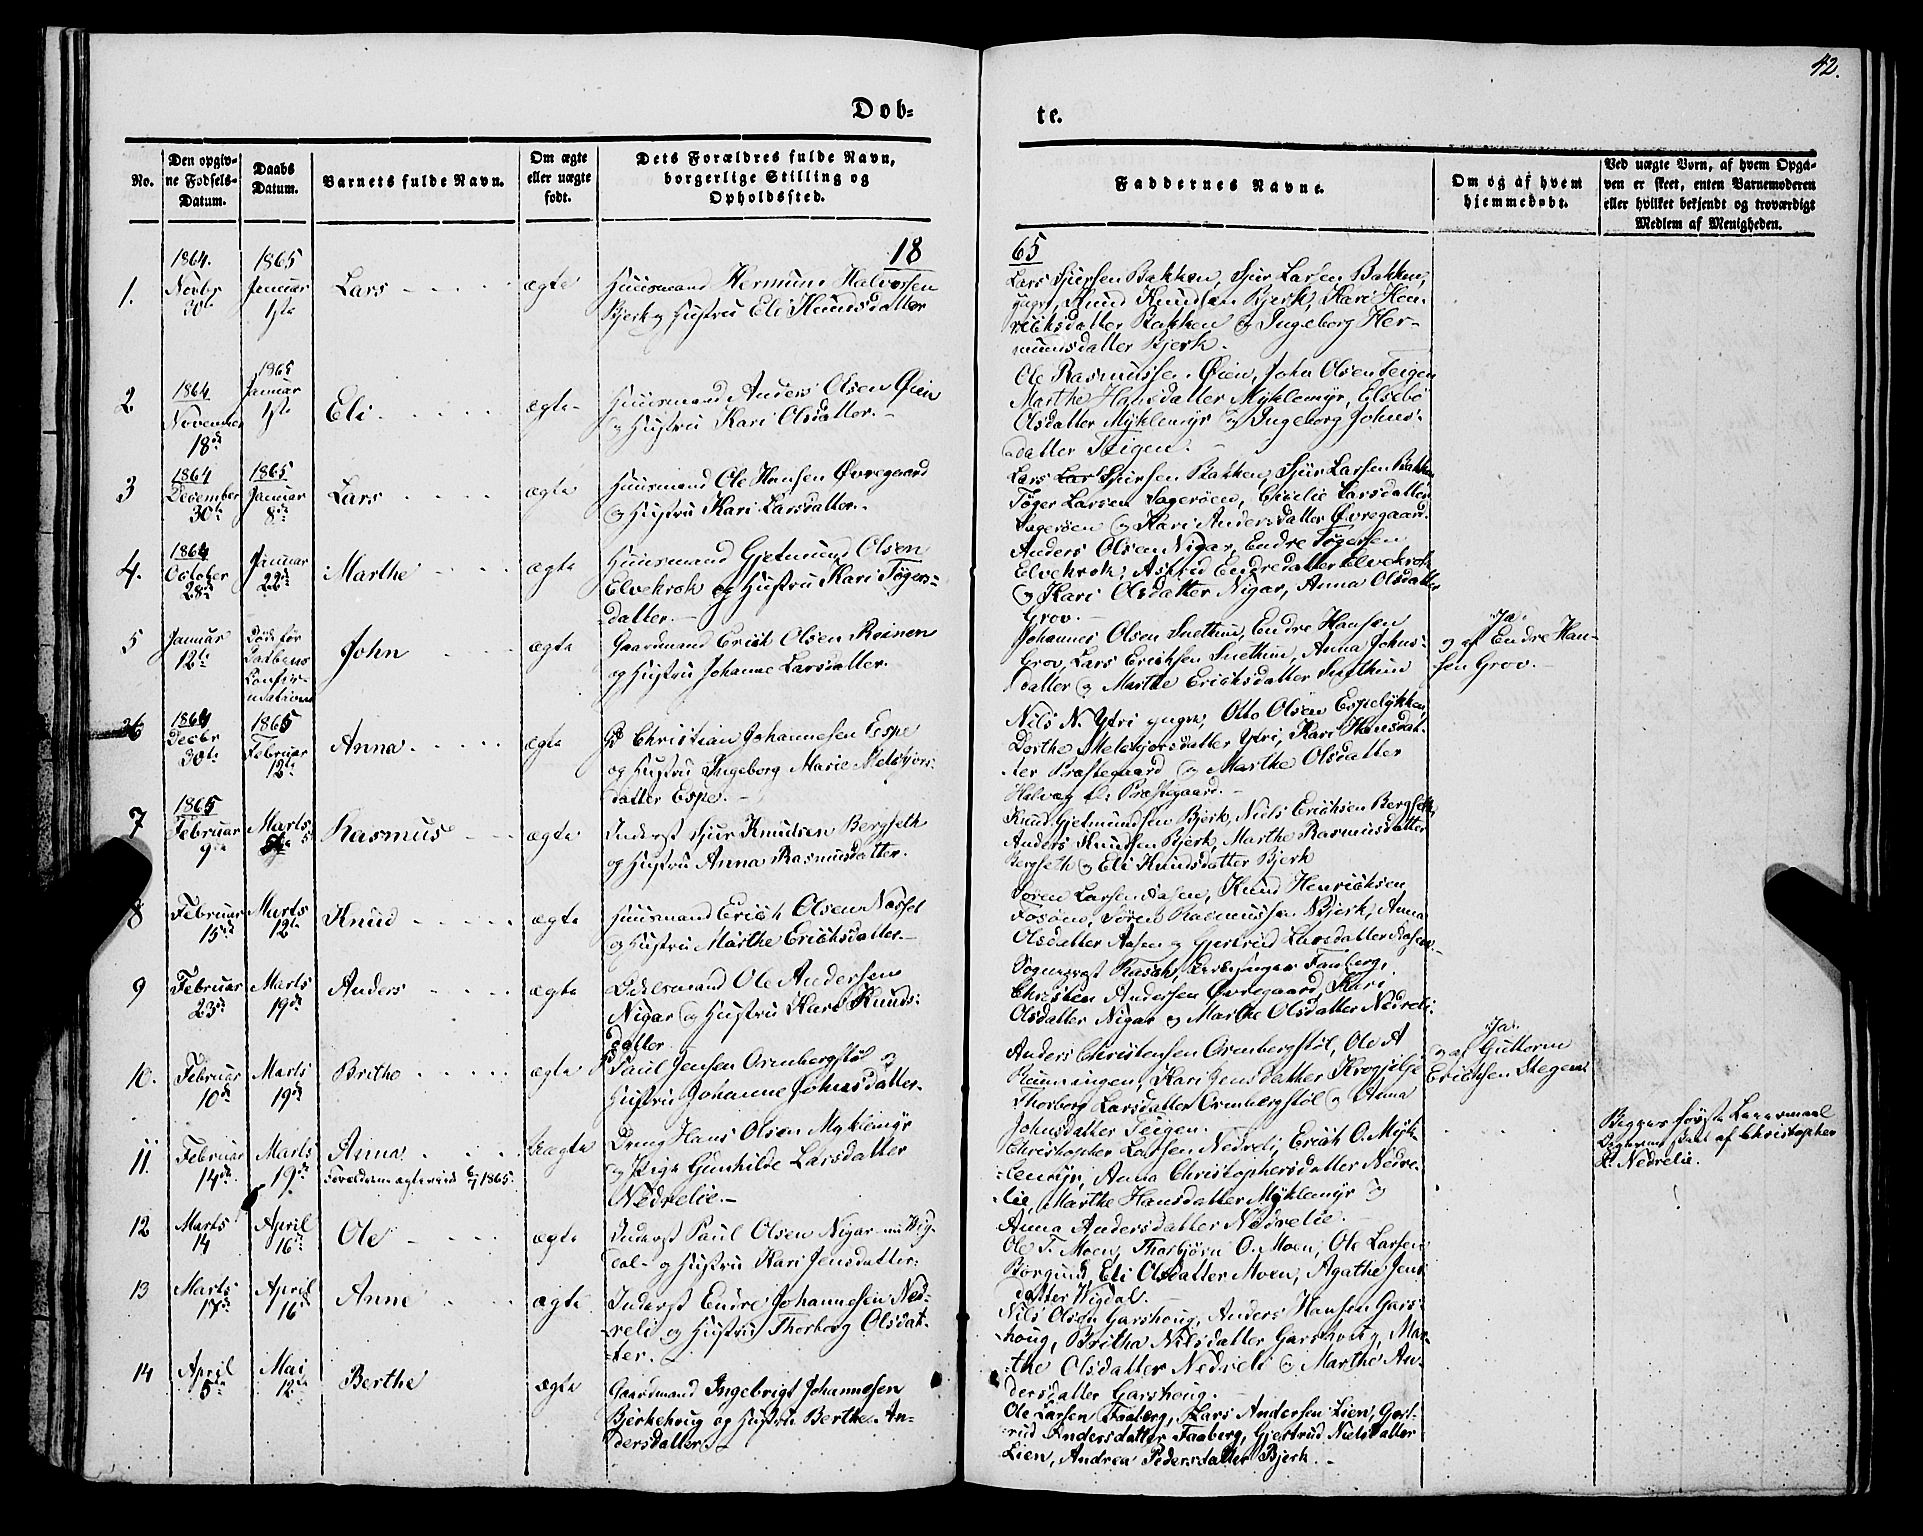 42.
Døb-
te.
No.
Den opgiv-
ne Fødsels-
Datum.
Daabs
Datum.
Barnets fulde Navn.
Om ægte
eller uægte
født.
Dets Forældres fulde Navn,
borgerlige Stilling og
Opholdssted.
Faddernes Navne.
Om og af hvem
hjemmedøbt.
Ved uægte Børn, af hvem Opga-
ven er skeet, enten Barnemoderen
eller hvilket bekjendt og troværdigt
Medlem af Menigheden.
18
65
1.
1864.
Novbr
30te
1865
Januar
1ste
Lars
ægte
Huusmand Hermund Halvorsen
Bjerk og Hustru Eli Knudsdatter
Lars Sjursen Bakken, Sjur Larsen Bakken,
yngre, Knud Knudsen Bjerk, Kari Hen-
richsdatter Bakken og Ingeborg Her-
mundsdatter Bjerk.
2
1864
November
18de
1865
Januar
1ste
Eli
ægte
Huusmand Anders Olsen Øien
og Hustru Kari Olsdatter.
Ole Rasmussen Øien, John Olsen Teigen
Marthe Hansdatter Myklemyr, Elsebe
Olsdatter Myklemyr og Ingeborg Johns-
datter Teigen.
3
1864
December
30te
1865
Januar
8de
Lars
ægte
Huusmand Ole Hansen Øvregaard
og Hustru Kari Larsdatter.
Lars Sjursen Bakken, Sjur Larsen Bakken
Tøger Larsen Sagerøen, Cicelie Larsdatter
Sagerøen og Kari Andersdatter Øvregaard.
4.
1864
October
28de
Januar
22de
Marthe
ægte
Huusmand Gjetmund Olsen
Elvekrok og Hustru Kari Tøgers-
datter.
Anders Olsen Nigar, Endre Tøgersen
Elvekrok, Astrid Endredatter Elvekrok
og Kari Olsdatter Nigar, Anna Olsdatter
Grov.
5
Januar
12te
Død før
Daabens
Confir-
mation
John
ægte
Gaardmand Erich Olsen Roinen
og Hustru Johanne Larsdatter.
Johannes Olsen Snethun, Endre Hansen
Grov, Lars Erichsen Snethun, Anna Johns-
datter og Marthe Erichsdatter Snethun
Ja,
og af Endre Han-
sen Grov.
6
1864
Decbr
30te
1865
Februar
12te
Anna
ægte
Christian Johannesen Espe
og Hustru Ingeborg Marie Metobjors-
datter Espe.
Nils N. Ytri yngre, Otto Olsen Espelykken
Dorthe Metobjorsdatter Ytri, Kari Hansdat-
ter Præstegaard og Marthe Olsdatter
Præstegaard.
7
1865
Februar
9de
Marts
5
Rasmus
ægte
Inderst Sjur Knudsen Bergseth
og Hustru Anna Rasmusdatter.
Knud Gjetmundsen Bjerk, Niels Erichsen Bergseth,
Anders Knudsen Bjerk, Marthe Rasmusdatter
Bergseth og Eli Knudsdatter Bjerk
8
Februar
15de
Marts
12te
Knud
ægte
Huusmand Erich Olsen Nasset
og Hustru Marthe Erichsdatter.
Søren Larsen Aasen, Knud Henrichsen
Fosøen, Søren Rasmussen Bjerk, Anna
Olsdatter Aasen og Gjertrud Larsdatter Aasen.
9
Februar
23de
Marts
19de
Anders
ægte
Ole Andersen
Nigar og Hustru Kari Knuds-
datter
Sogneprest Rasch, Kirkesanger Faaberg,
Christen Andersen Øvregaard, Kari
Olsdatter Nigar og Marthe Olsdatter Nedreli.
10.
Februar
10de
Marts
19de
Brithe
ægte
Paul Jensen Ormbergstøl og
Hustru Johanne Johnsdatter.
Anders Christensen Ormbergstøl, Ole A
Rønningen, Kari Jensdatter Krogjolje
Thorborg Larsdatter Ormbergstøl og Anna
Johnsdatter Teigen.
Ja.
og af Guttorm
Erichsen Stegene
11.
Februar
14de
Marts
19de
Anna
Forældrene ægteviede 6/7 1865.
Uægte
Dreng Hans Olsen Myklemyr
og Pige Gunhilde Larsdatter
Nedrelie.
Christopher Larsen Nedreli, Erich O. Myk-
lemyr, Anna Christophersdatter Nedre-
lie, Marthe Hansdatter Myklemyr og
Anna Andersdatter Nedrelie.
Begges første Leiermaal
Opgaven skeet af Christopher
L. Nedrelie.
12
Marts
14
April
16de
Ole
ægte
Inderst Paul Olsen Nigar nu Vig-
dal og Hustru Kari Jensdatter.
Ole T. Moen, Thorbjørn O. Moen, Ole Larsen
Borgund, Eli Olsdatter Moen, Agathe Jens
datter Wigdal.
13
Marts
17de
April
16de
Anne
ægte
Inderst Endre Johannesen Ned-
reli og Hustru Thorborg Olsdat-
ter.
Nils Olsen Garshoug, Anders Hansen Gars-
houg, Britha Nilsdatter Garshoug, Mar-
the Olsdatter Nedreli og Marthe An-
dersdatter Garshoug.
14
April
5te
Mai
12te
Berthe
ægte
Gaardmand Ingebrigt Johannesen
Bjerkehoug og Hustru Berthe An-
dersdatter.
Ole Larsen Faaberg, Lars Andersen Lien, Gjert-
rud Andersdatter Faaberg, Gjertrud Nielsdatter
Lien, Andrea Pedersdatter Bjerk.